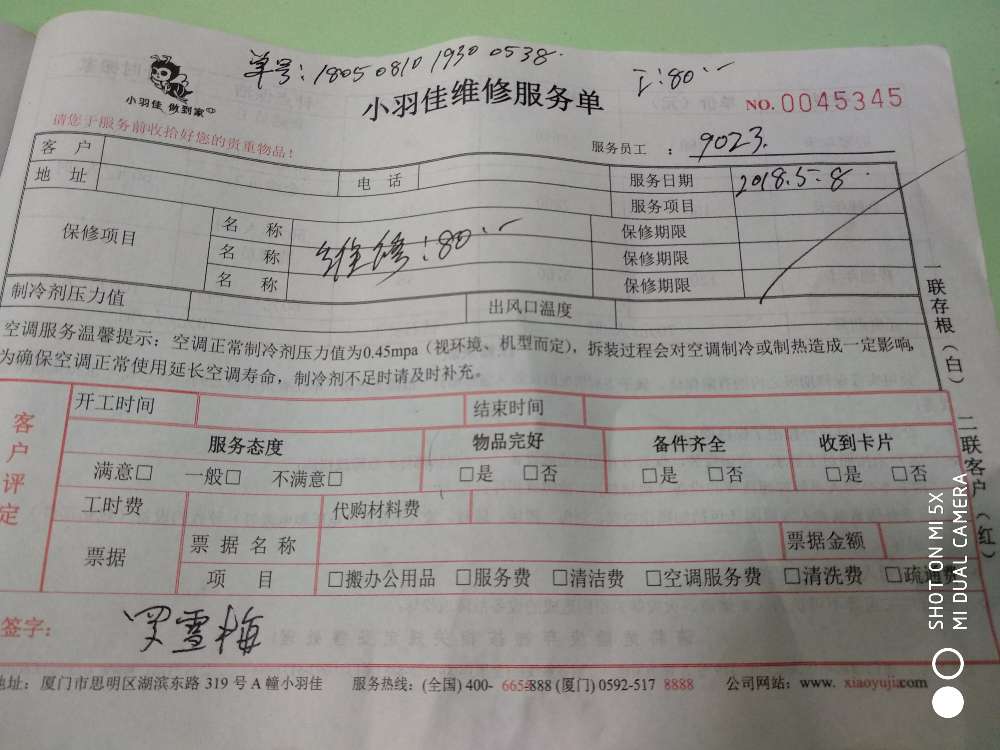 单号:18050810 1930 0538
工:80.--
小羽佳 做到家
小羽佳维修服务单
NO.0045345
请您于服务前收拾好您的贵重物品!
服务员工 : 9023.
客 户
地 址 电 话 服务日期 2018.5.8
服务项目
保修项目 名 称 保修期限
名 称 维修:80.-- 保修期限
名 称 保修期限
制冷剂压力值 出风口温度
空调服务温馨提示:空调正常制冷剂压力值为0.45mpa(视环境、机型而定),拆装过程会对空调制冷或制热造成一定影响,
为确保空调正常使用延长空调寿命,制冷剂不足时请及时补充。
一联存根(白)
二联客户(红)
客户评定
开工时间 结束时间
服务态度 物品完好 备件齐全 收到卡片
满意□ 一般□ 不满意□ □是 □否 □是 □否 □是 □否
工时费 代购材料费
票据 票据名称 票据金额
项 目 □搬办公用品 □服务费 □清洁费 □空调服务费 □清洗费 □疏通费
签字: 罗雪梅
地址:厦门市思明区湖滨东路 319 号 A 幢小羽佳 服务热线:(全国) 400-665-888 (厦门) 0592-517 8888 公司网站:www. xiaoyujia.com
SHOT ON MI 5X
MI DUAL CAMERA